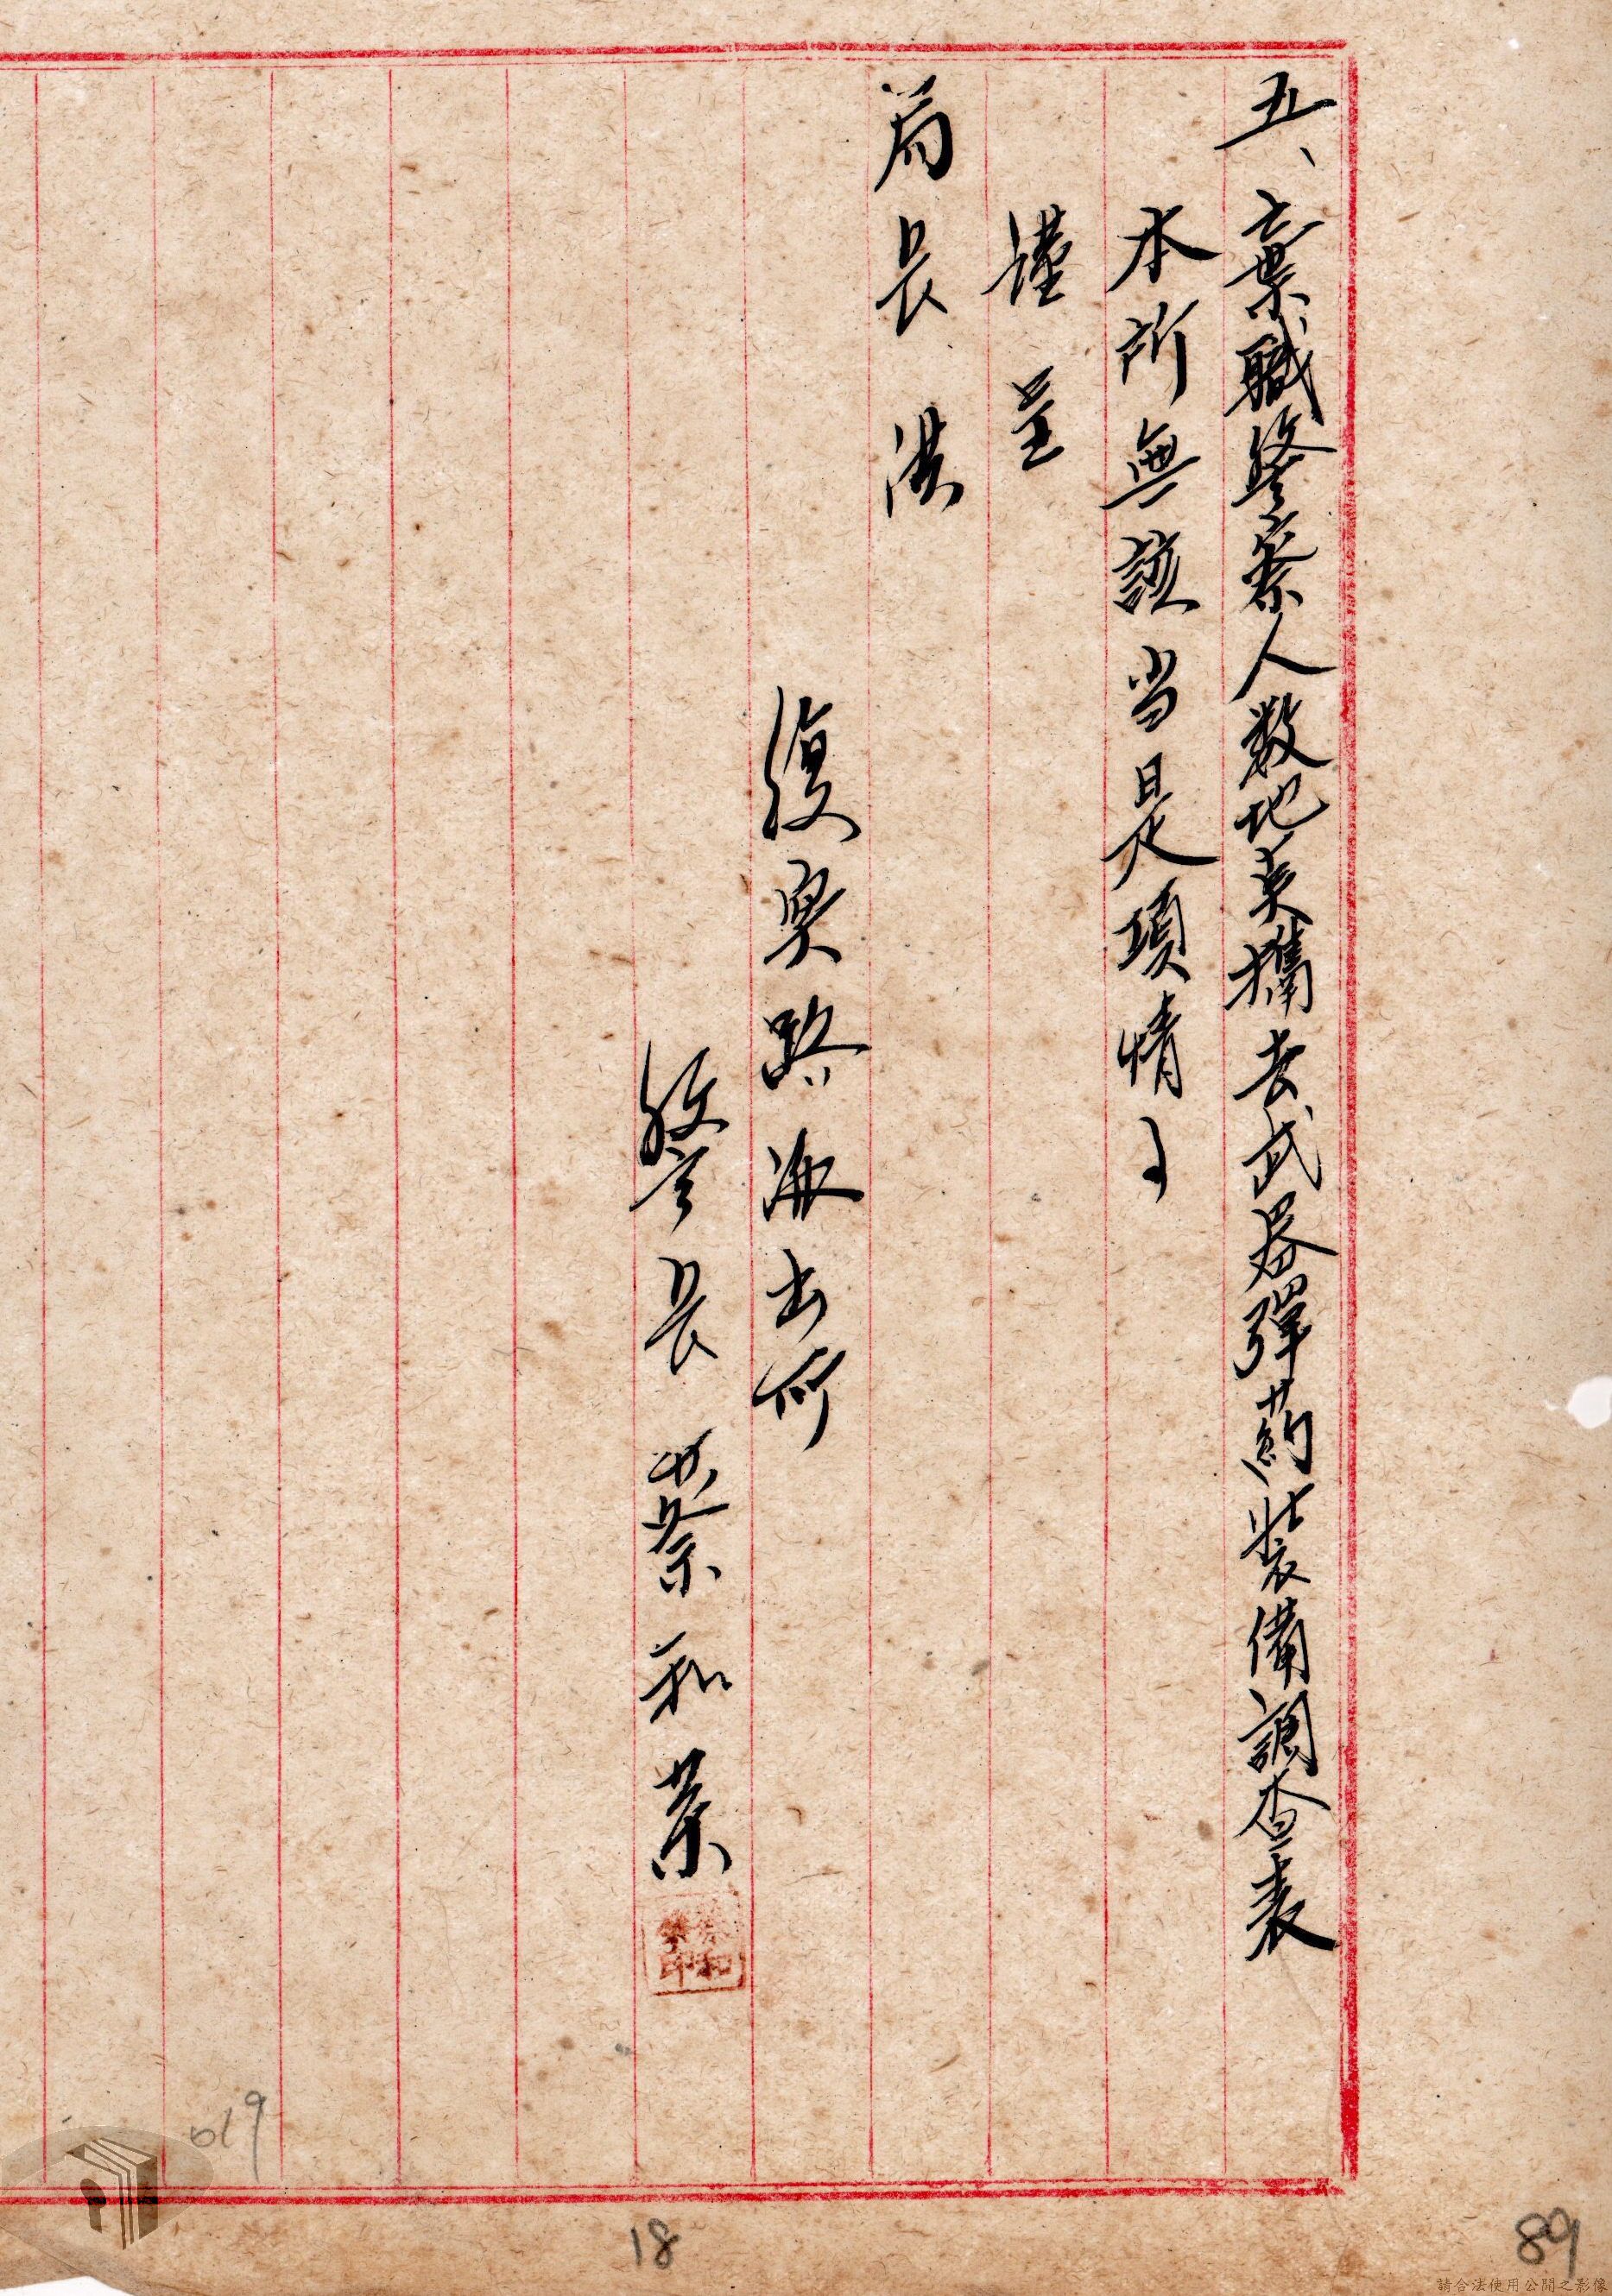 五、棄職警察人数地美攜去武器彈葯裝備調查表
本所無該当是項情事
謹呈
局長 洪
復興路派出所
警長 蔡和業
018
019
18
89
請合法使用公開之影像